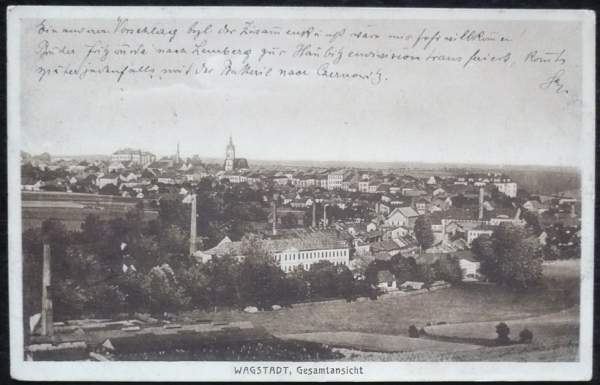 Ein anderer Vorschlag bzgl. der Zusammenkunft wäre mir sehr willkommen!
Bruder Fritz wurde nach Lemberg zur Haubitzendivision transferiert, kommt
später jedenfalls mit der Batterie nach Czernowitz.
WAGSTADT, Gesamtansicht